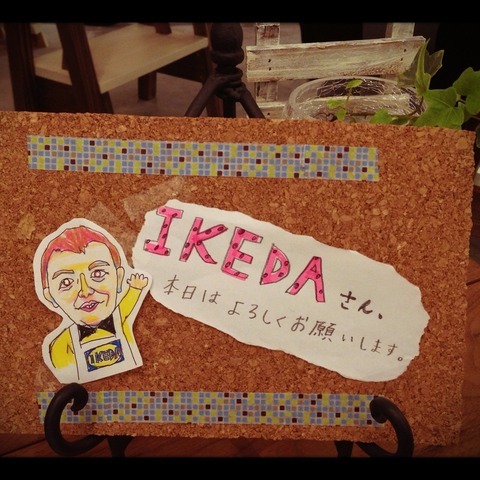 IKEDAさん、
本日はよろしくお願いします。
IKEDA